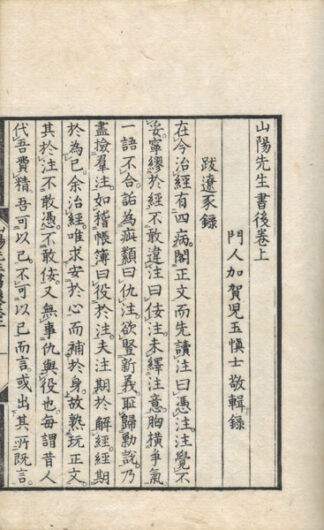 山陽先生書後卷上
門人加賀児玉慎士敬輯録
跋遼豕録
在今治經有四病閣正文而先讀注曰憑注注覺不
妥寧繆於經不敢違注曰佞注未繹注意胸横爭氣
一語不合詬為疵纇曰仇注欲竪新義恥歸勦說乃
盡撿羣注如稽帳簿曰役於注夫注期於解經經期
於為已余治經唯求安於心而補於身故熟玩正文
其於注不敢憑不敢佞又無事仇與役也每謂昔人
代吾費精吾可以已不可以已而言或出其所既言